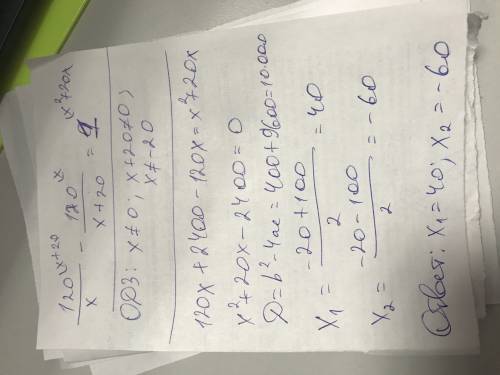 120^(x+20)/x - 120^(x)/(x+20) = 1^(x²+20x)
ОДЗ: x≠0; x+20≠0;
x≠-20
120x+2400-120x=x²+20x
x²+20x-2400=0
D=b²-4ac=400+9600=10.000
x₁ = (-20+100)/2 = 40
x₂ = (-20-100)/2 = -60
Ответ: x₁=40; x₂=-60